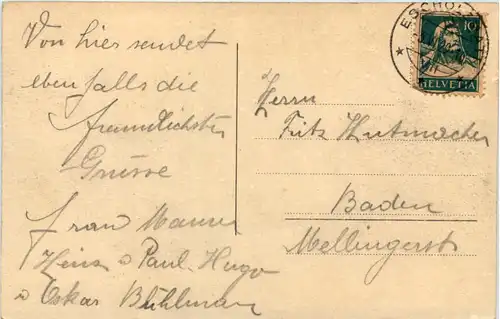 Von hier sendet
eben falls die
freundlichsten
Grüsse
Frau Maurer
Heinz & Paul Hugo
& Oskar Bühlmann
ESCHOLZ
10
HELVETIA
Herrn
Fritz Hutmacher
Baden
Mellingerstr